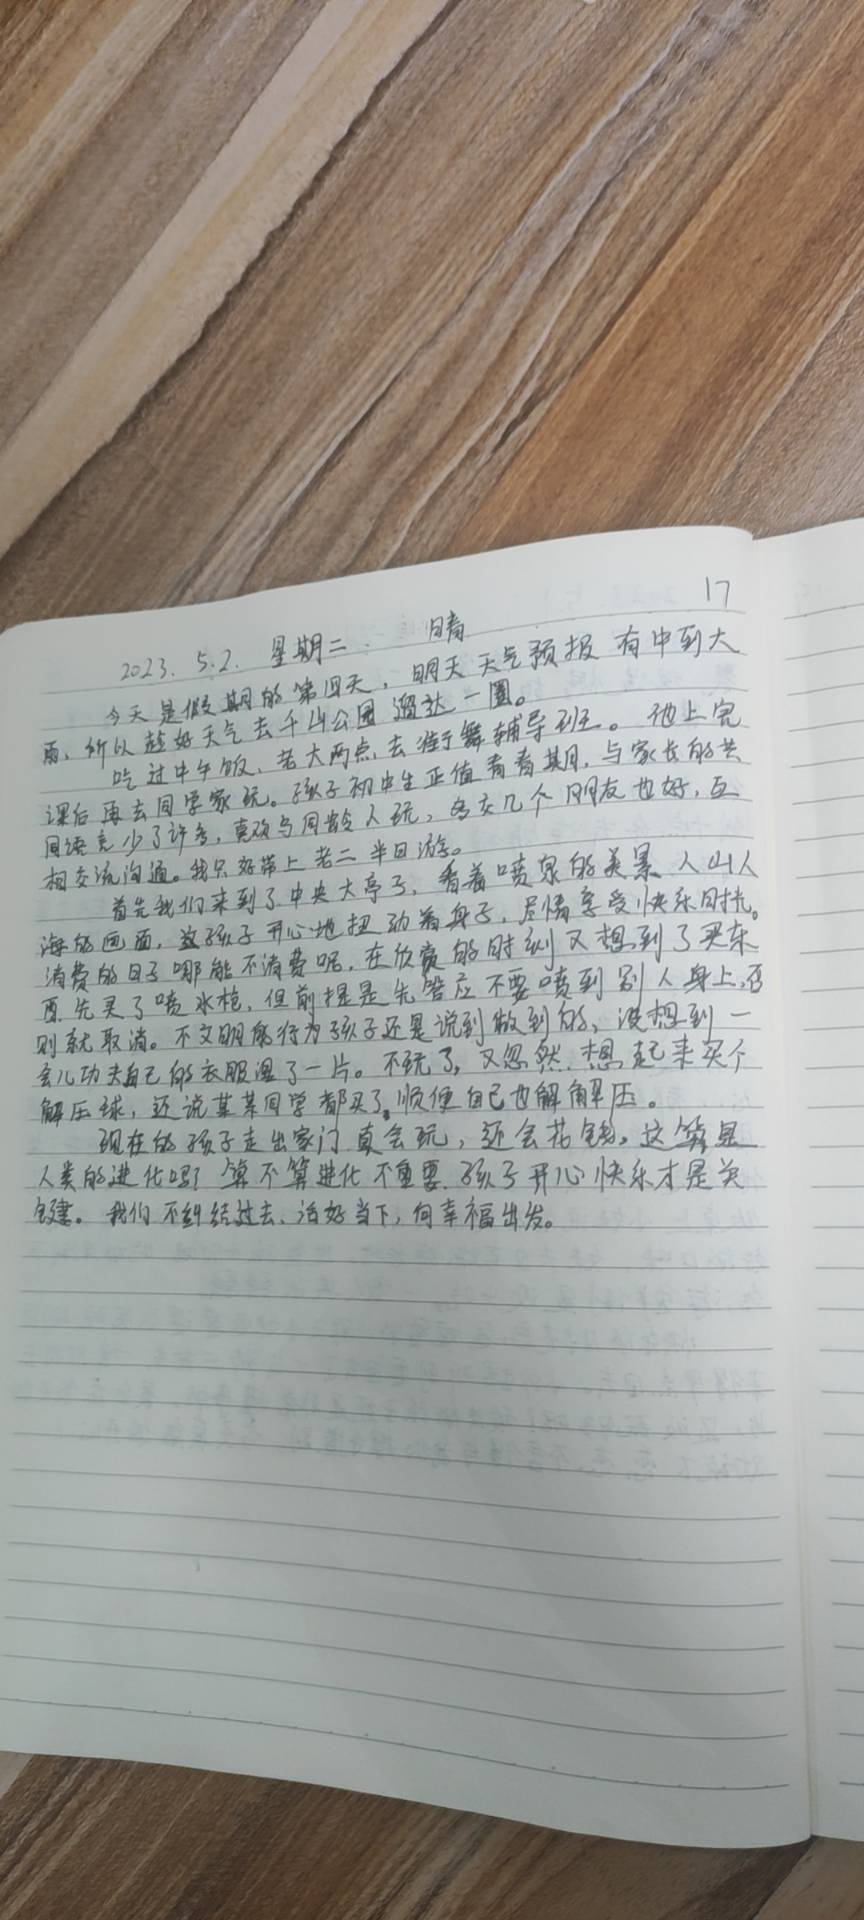 17
2023. 5.2. 星期二 晴
今天是假期的第四天，明天天气预报有中到大
雨，所以趁好天气去千山公园溜达一圈。
吃过中午饭，老大两点去街舞辅导班。他上完
课后再去同学家玩。孩子初中生正值青春期，与家长的共
同语言少了许多，喜欢与同龄人玩，多交几个朋友也好，互
相交流沟通。我只好带上老二半日游。
首先我们来到了中央大亭子，看着喷泉的美景 人山人
海的画面，孩子开心地扭动着身子，尽情享受快乐时光。
消费的日子哪能不消费呢，在欣赏的时刻又想到了买东
西先买了喷水枪，但前提是先答应不要喷到别人身上，否
则就取消。不文明的行为孩子还是说到做到的，没想到一
会儿功夫自己的衣服湿了一片。不玩了，又忽然想起来买个
解压球，还说某某同学都买了，顺便自己也解解压。
现在的孩子走出家门真会玩，还会花钱，这算是
人类的进化吗？算不算进化不重要，孩子开心快乐才是关
键。我们不纠结过去，活好当下，向幸福出发。